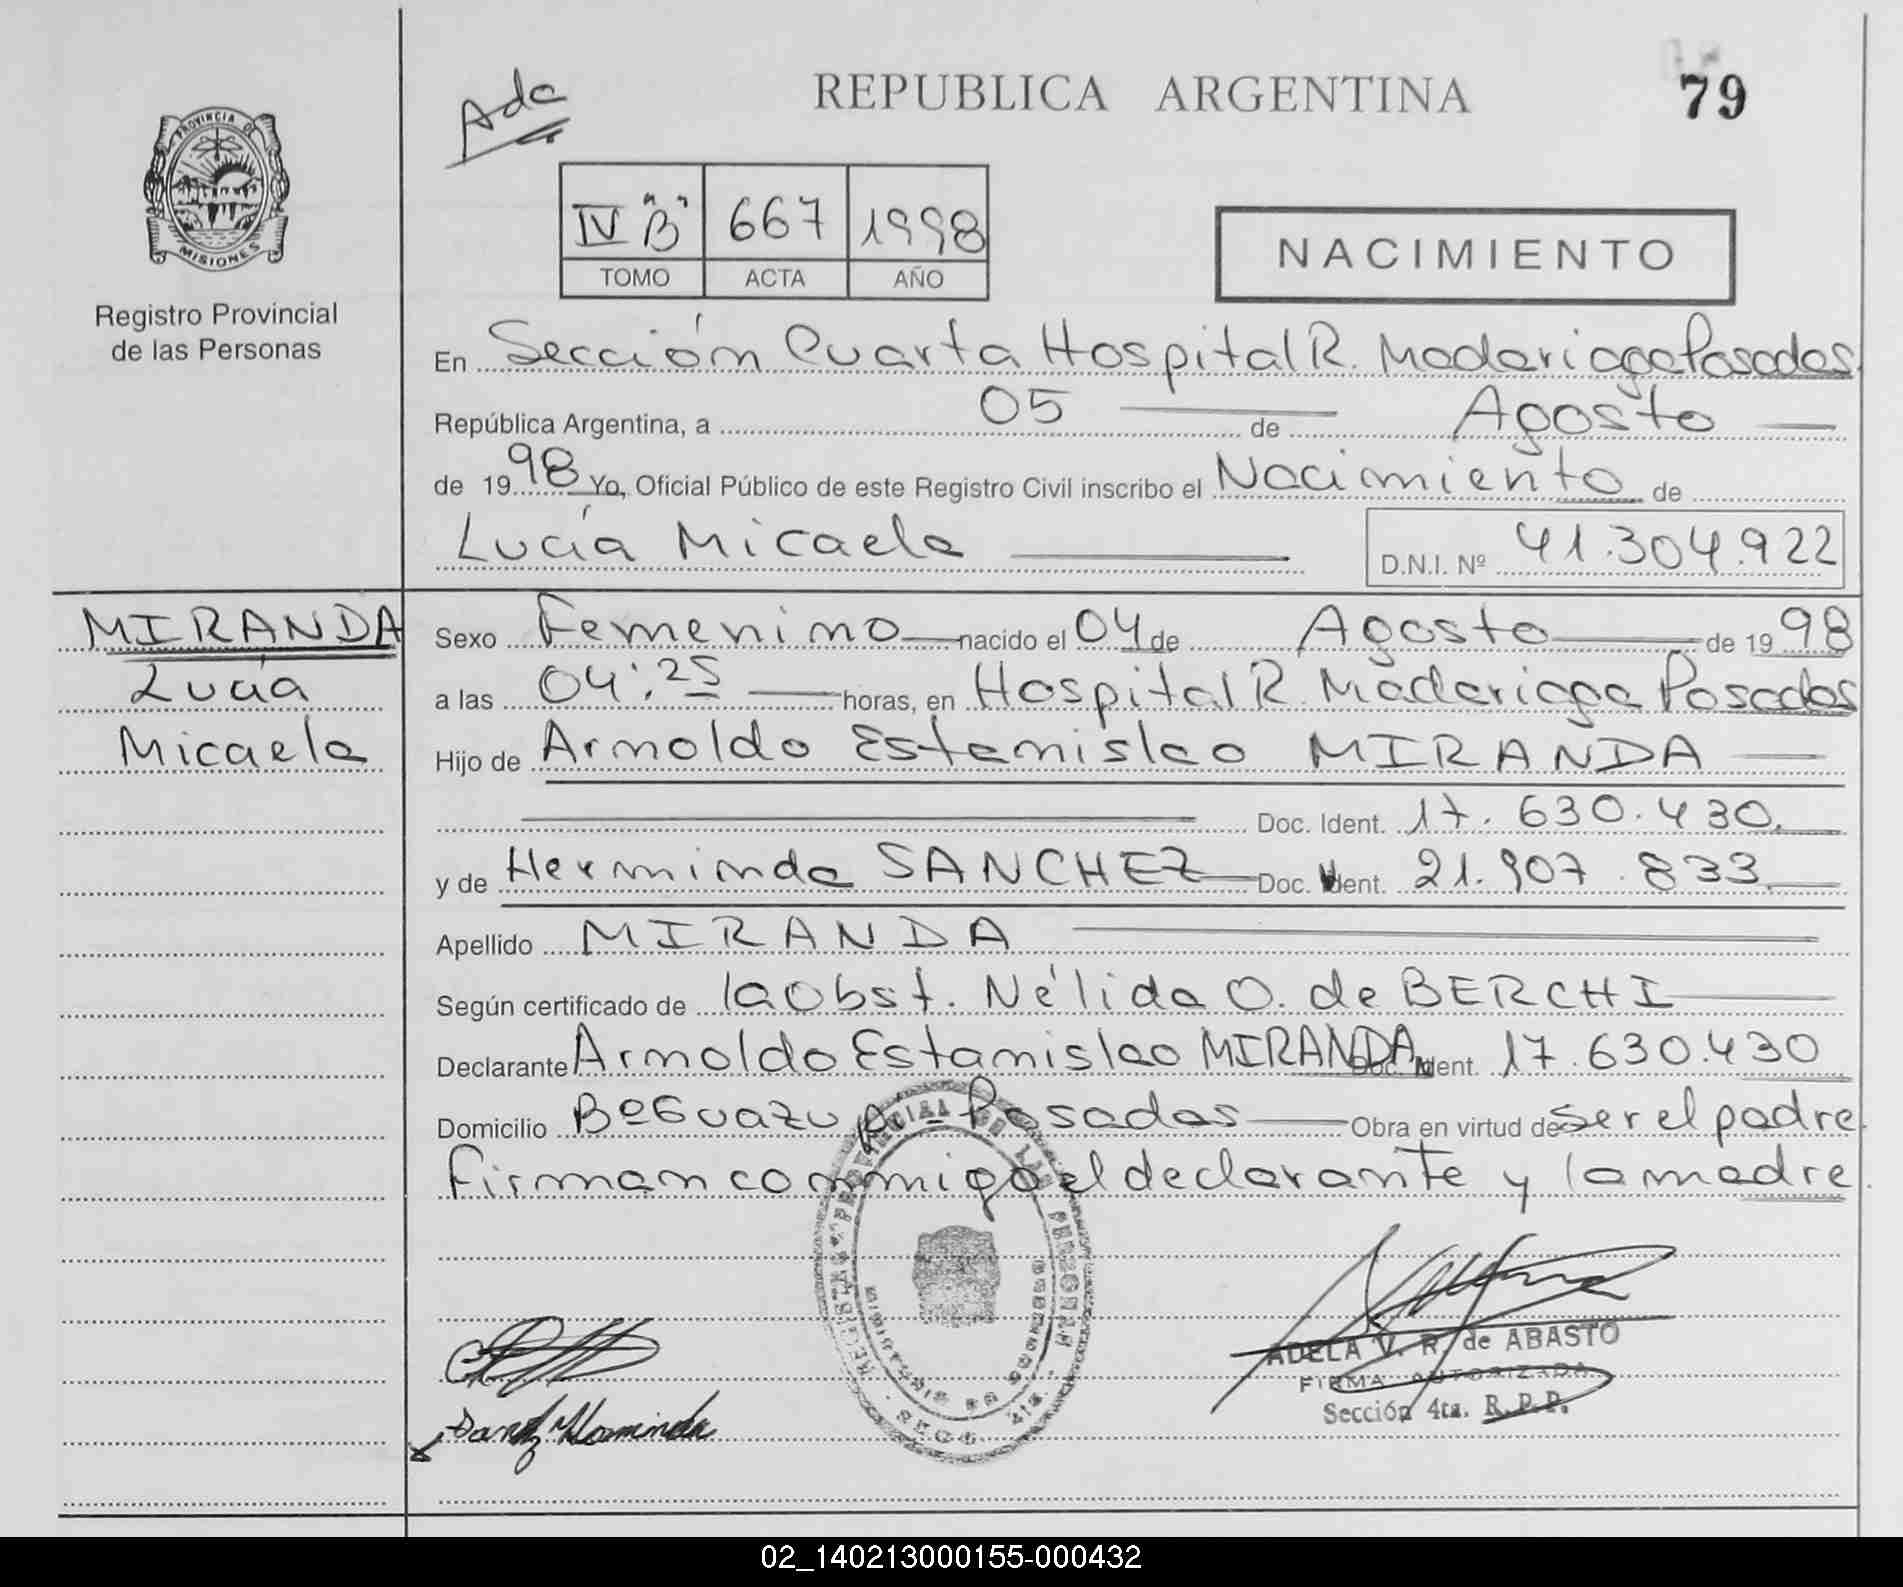 REPUBLICA ARGENTINA
79
Ada
PROVINCIA DE
MISIONES
Registro Provincial
de las Personas
IV "B" 667 1998
TOMO ACTA AÑO
NACIMIENTO
En Sección Cuarta Hospital R. Madariaga Posadas
República Argentina, a 05 de Agosto
de 1998 Yo, Oficial Público de este Registro Civil inscribo el Nacimiento de
Lucía Micaela D.N.I. Nº 41.304.922
MIRANDA
Lucía
Micaela
Sexo Femenino nacido el 04 de Agosto de 1998
a las 04:25 horas, en Hospital R. Madariaga Posadas
Hijo de Arnoldo Estanislao MIRANDA
Doc. Ident. 17.630.430.
y de Herminda SANCHEZ Doc. Ident. 21.907.833
Apellido MIRANDA
Según certificado de la Obst. Nélida O. de BERCHI
Declarante Arnoldo Estanislao MIRANDA Doc. Ident. 17.630.430
Domicilio Bº Guazupí - Posadas Obra en virtud de ser el padre
Firman conmigo el declarante y la madre.
ADELA V. R. de ABASTO
FIRMA AUTORIZADA
Sección 4ta. R.P.P.
02_140213000155-000432